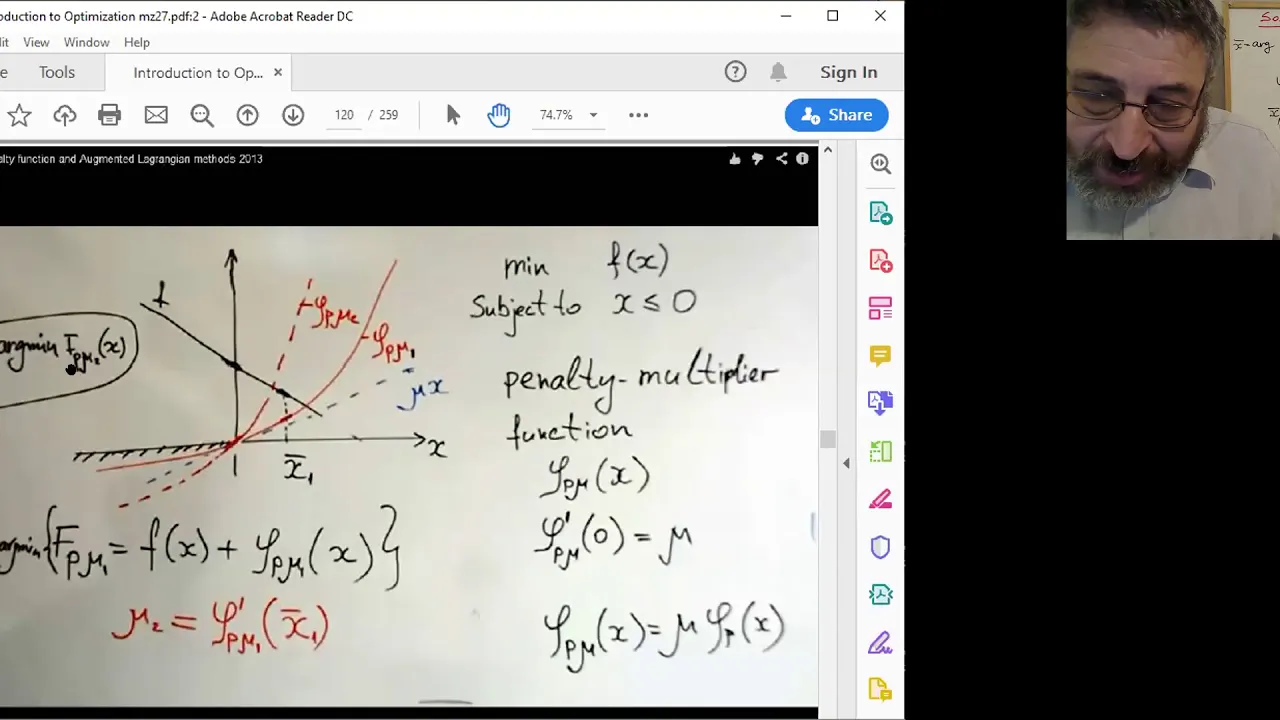 oduction to Optimization mz27.pdf:2 - Adobe Acrobat Reader DC
it View Window Help
e Tools Introduction to Op... × Sign In
120 / 259 74.7% Share
alty function and Augmented Lagrangian methods 2013
f
φ_pμ₂
φ_pμ₁
μx
x
x̄₁
argmin F_pμ₂(x)
argmin{F_pμ₁ = f(x) + φ_pμ₁(x)}
μ₂ = φ'_pμ₁(x̄₁)
min f(x)
Subject to x ≤ 0
penalty-multiplier
function
φ_pμ(x)
φ'_pμ(0) = μ
φ_pμ(x) = μ φ_p(x)
So
x̄ = arg